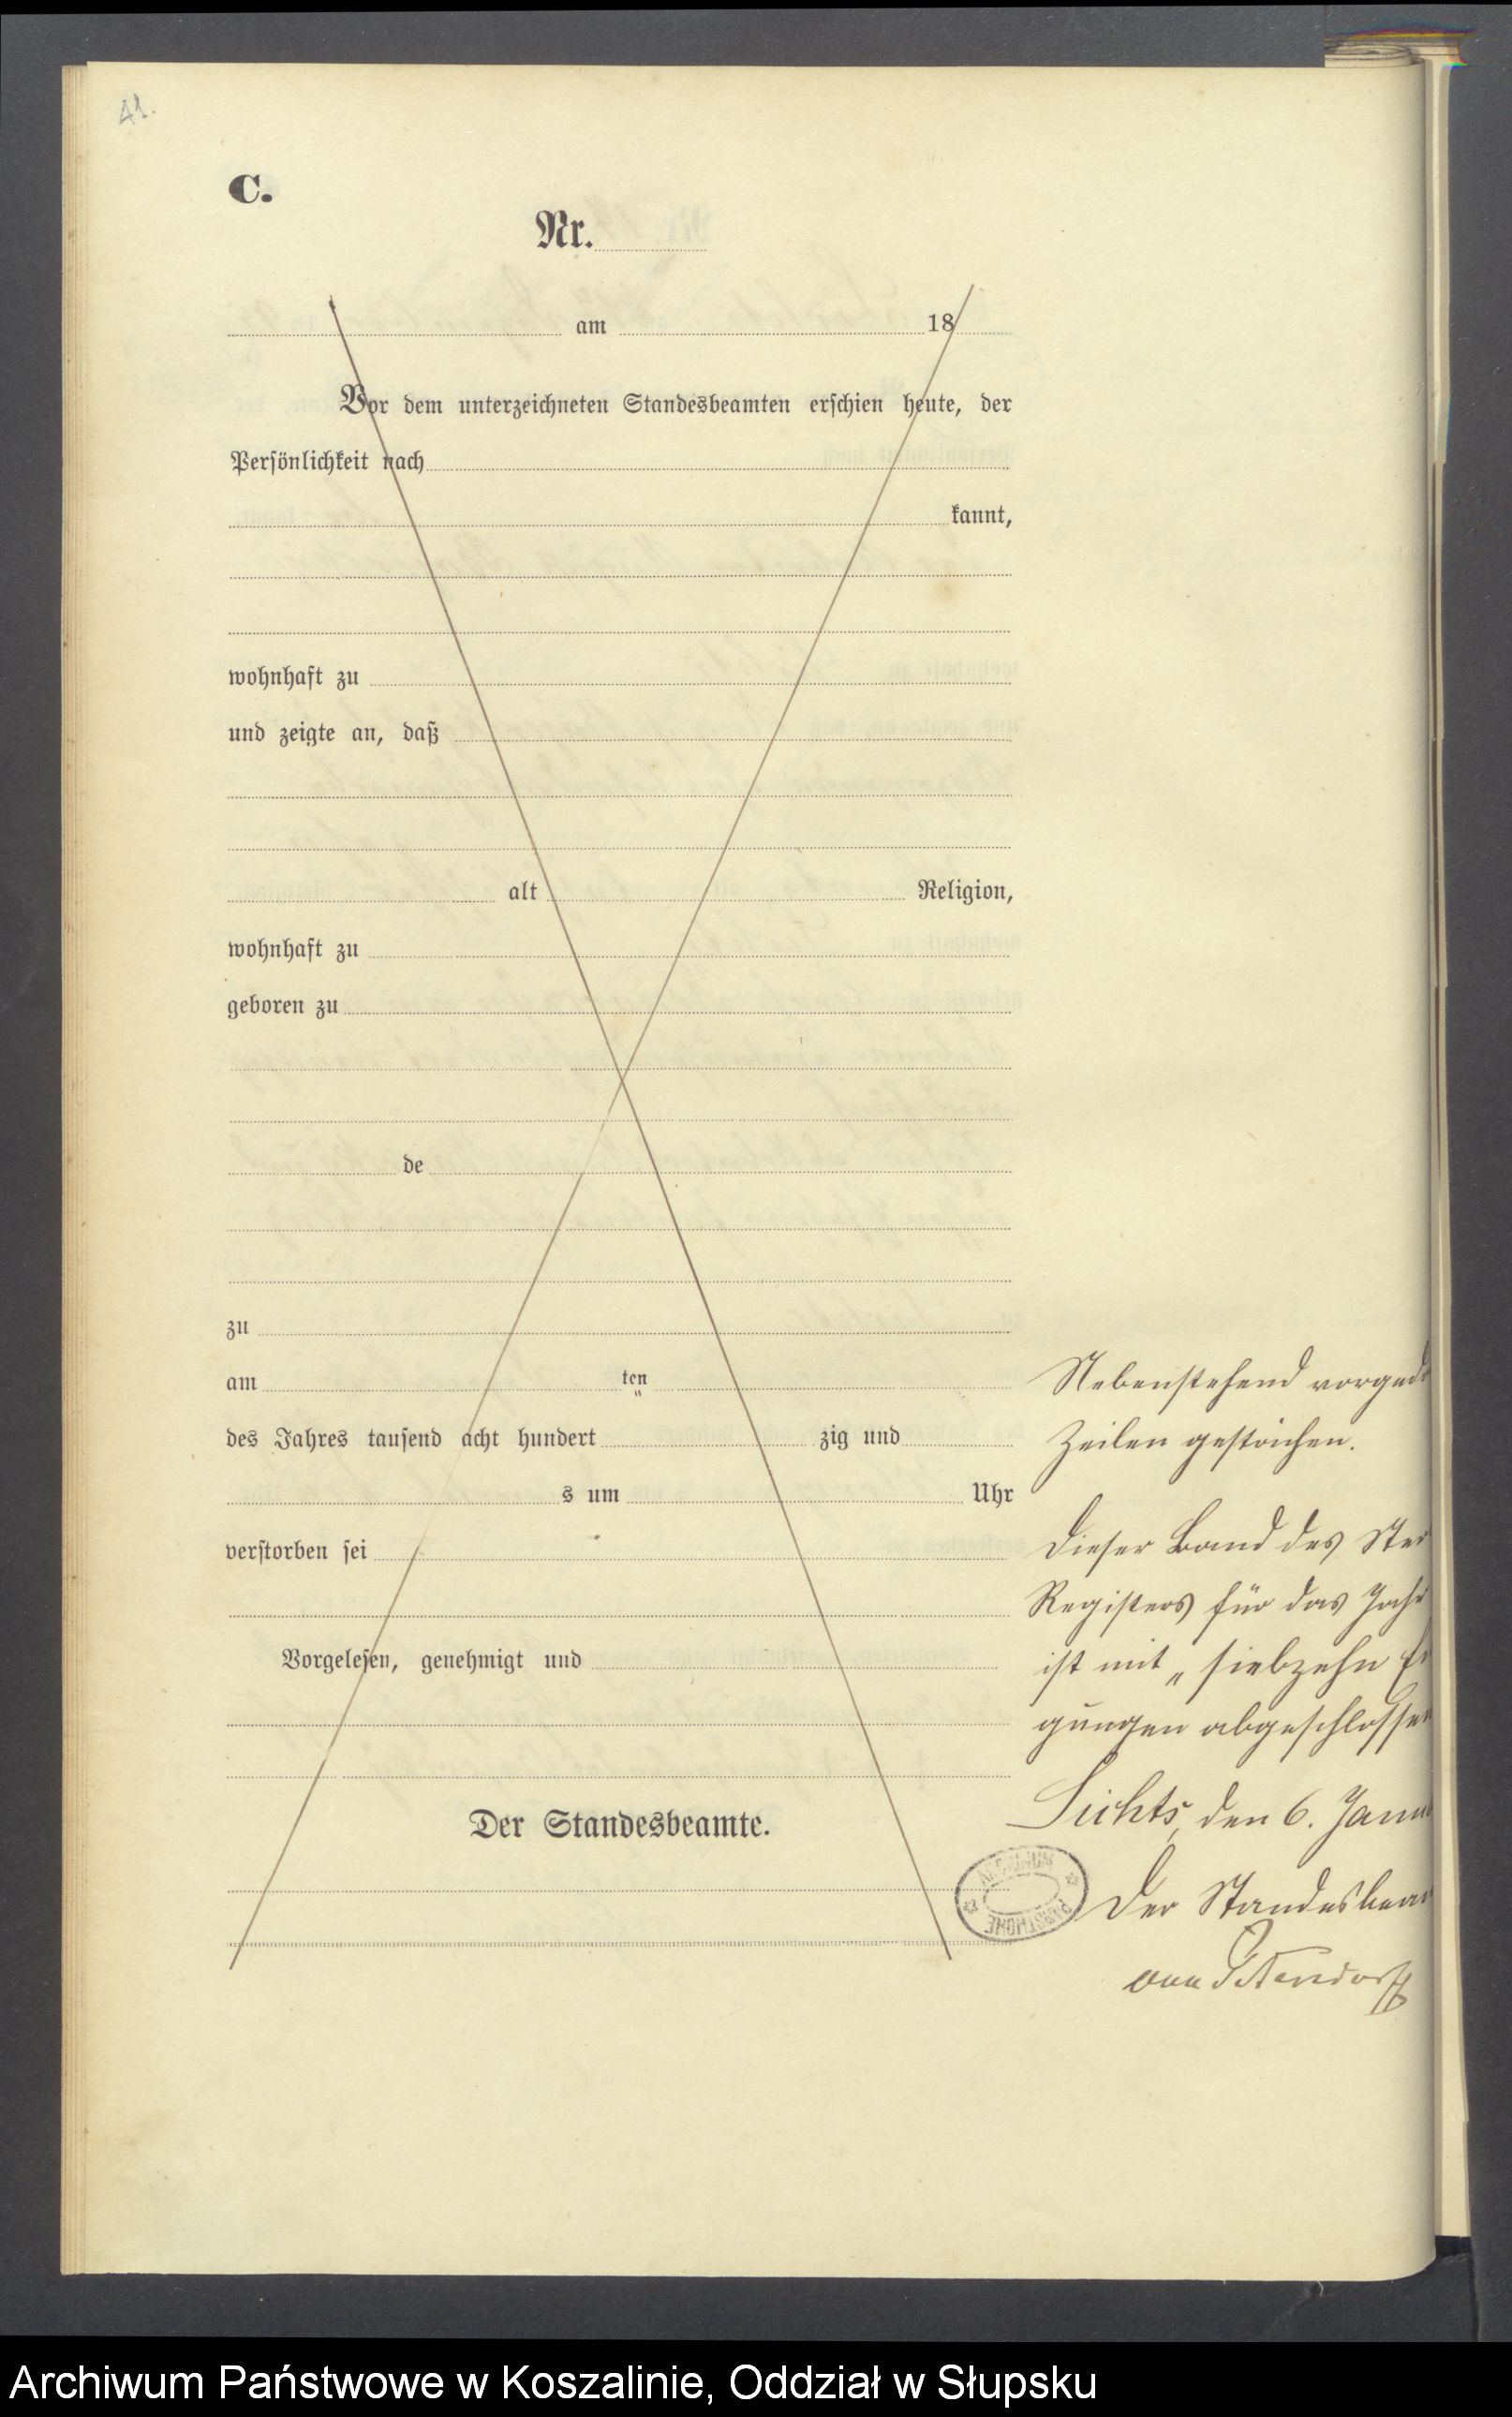 41.
C.
Nr.
am 18
Vor dem unterzeichneten Standesbeamten erschien heute, der
Persönlichkeit nach
kannt,
wohnhaft zu
und zeigte an, daß
alt Religion,
wohnhaft zu
geboren zu
de
zu
am ten
des Jahres tausend acht hundert zig und
s um Uhr
verstorben sei
Vorgelesen, genehmigt und
Der Standesbeamte.
Nebenstehend vorged
Zeilen gestrichen.
Dieser Band des Ster
Registers für das Jahr
ist mit „ siebzehn Ei
gungen abgeschlossen
den 6. Janu
Der Standesbeam
von
ARCHIWUM
Archiwum Państwowe w Koszalinie, Oddział w Słupsku